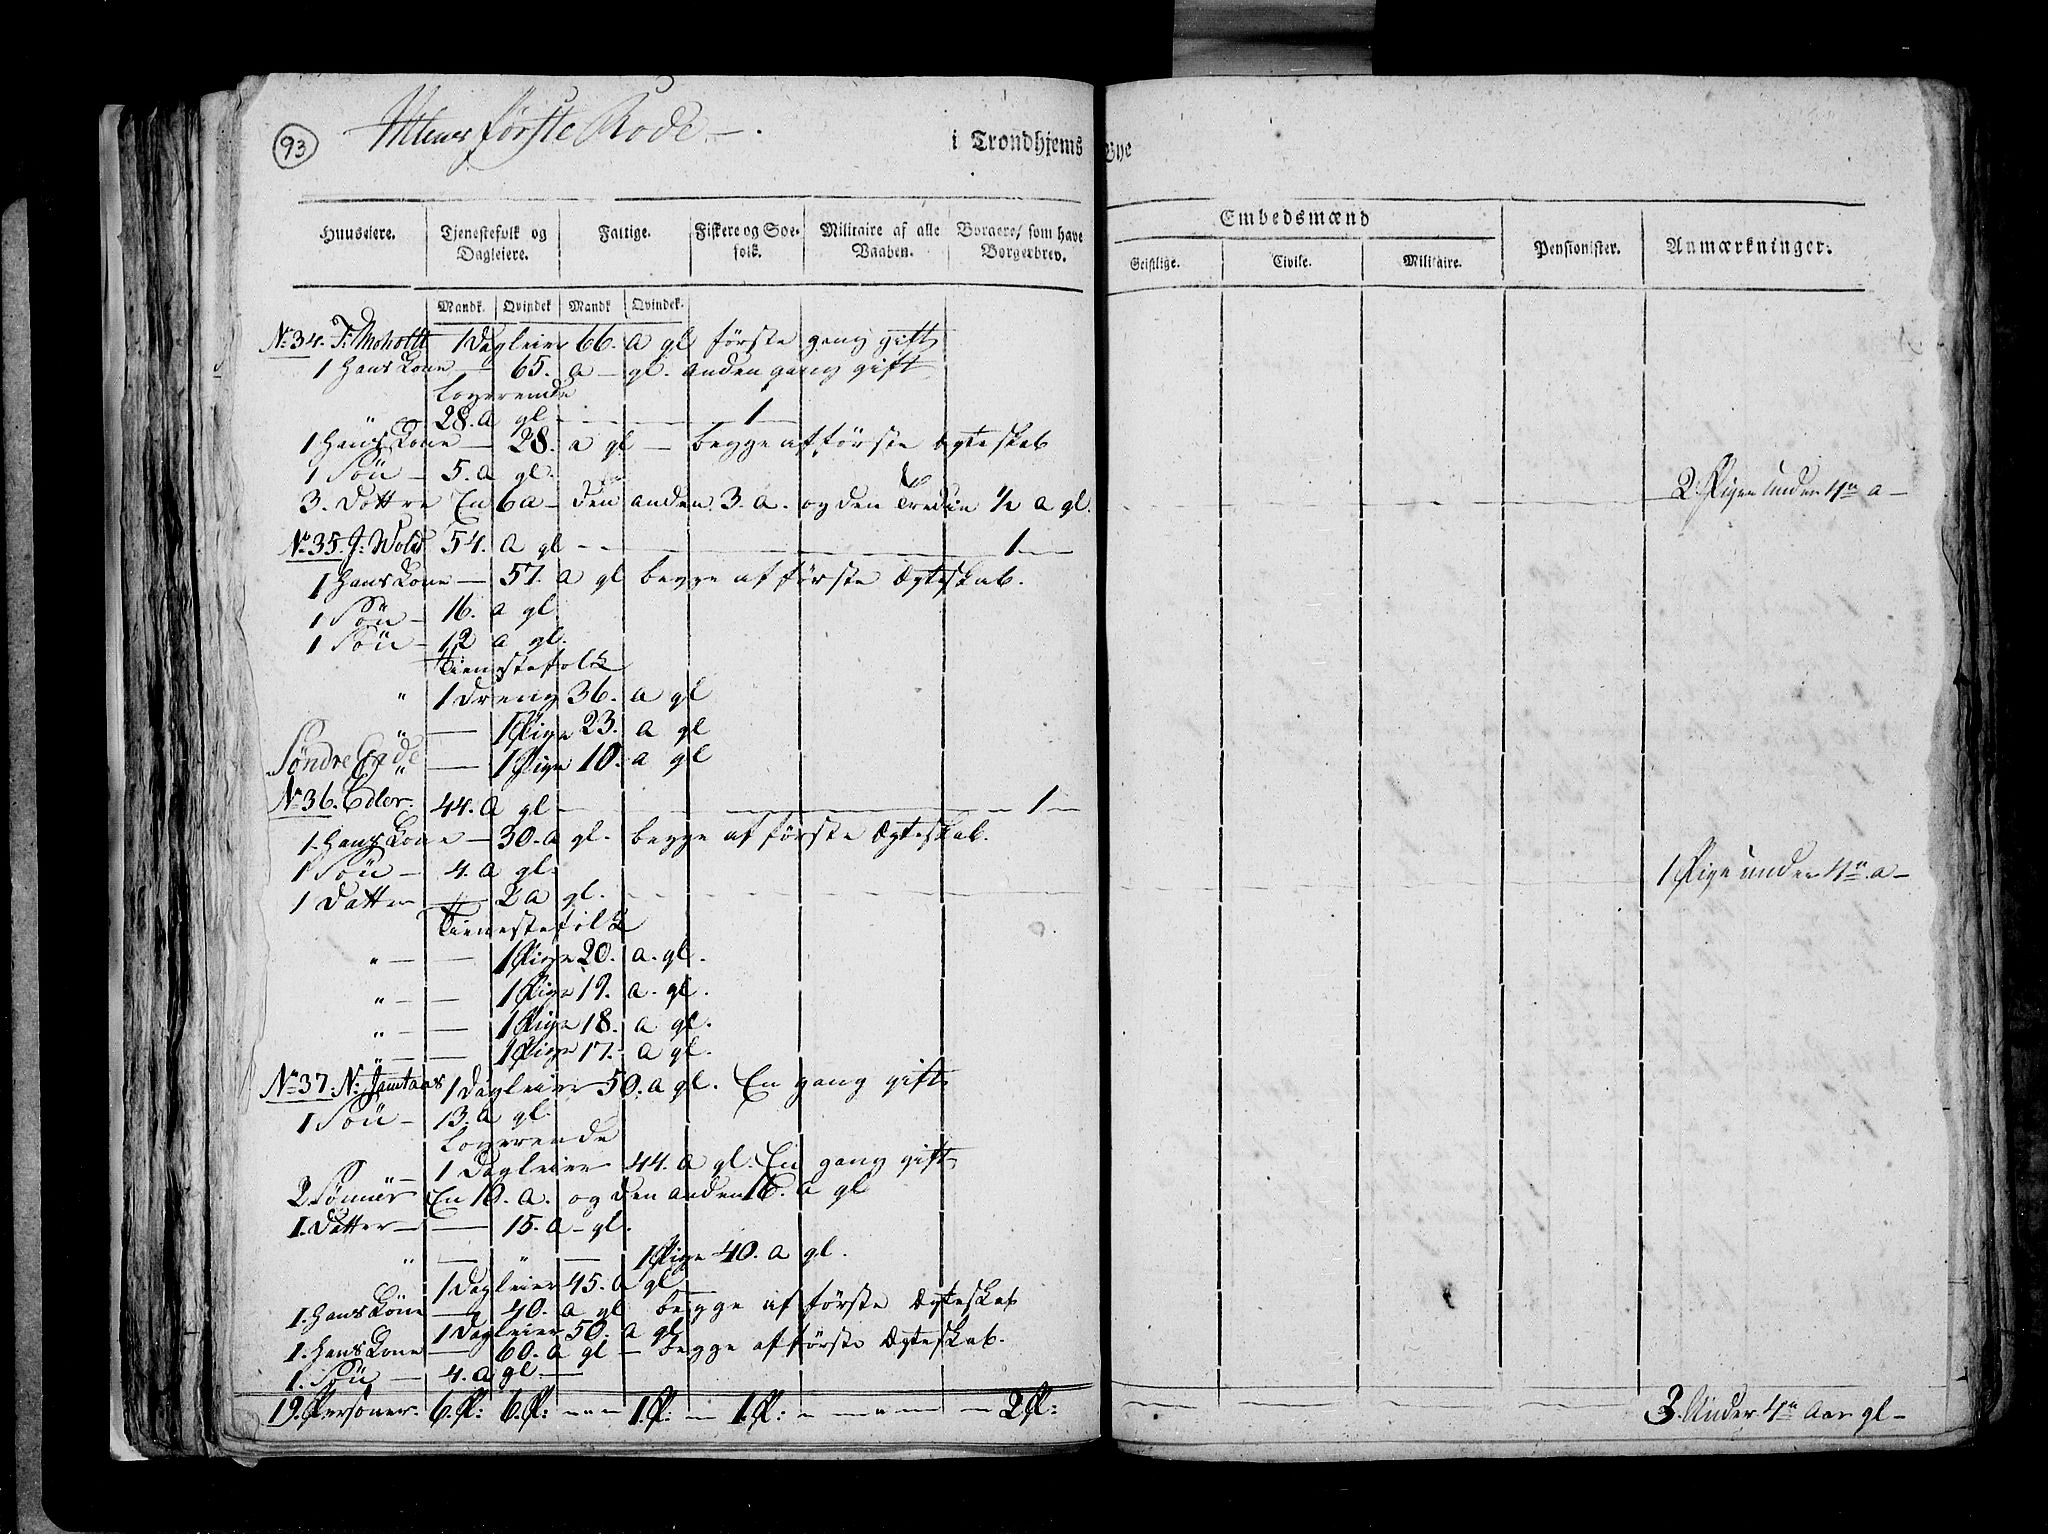 93
Ihlens første Rode —.
i Trondhjems Bye
Huuseiere. Tjenestefolk og Dagleiere. Fattige. Fiskere og Søefolk. Militaire af alle Vaaben. Borgere, som have Borgerbrev. Embedsmænd Pensionister. Anmærkninger.
Geistlige. Civile. Militaire.
Mandk. Qvindek Mandk Qvindek.
No 34. J: Moholtt 1 Dagleier 66. a gl første gang gift
1 Hans Kone — 65. a — gl. anden gang gift
Logerende
" 28. a gl — 1 —
1 Hans Kone — 28. a gl — begge af første Ægteskab
1 Søn — 5. a gl.
3. Døttre En 6 a — den anden 3. a. og den Tredie 1/2 a gl. 2 Piger under 4re a —
No 35. J: Wold 54. a gl — 1 —
1 Hans Kone — 57. a gl begge af første Ægteskab.
1 Søn — 16. a gl
1 Søn — 12 a gl.
Tienestefolk
" 1 Dreng 36. a gl
" — 1 Pige 23. a gl
Søndre Ende " — 1 Pige 10. a gl
No 36. Edler. 44. a gl — 1 —
1. Hans Kone — 30. a gl. begge af første Ægteskab.
1 Søn — 4. a gl.
1 Datter — 2 a gl. 1 Pige under 4re a —
Tienestefolk
" — — 1 Pige 20. a. gl.
" — — 1 Pige 19. a. gl.
" — — 1 Pige 18. a gl.
" — — 1 Pige 17. a gl.
No 37. N: Jamtaas 1 Dagleier 50. a gl. En gang gift
1 Søn — 13. a gl.
Logerende
" — 1 Dagleier 44. a gl. En gang gift
2 Sønner En 18. a. og den anden 16. a gl
1. Datter — — 15. a — gl.
" — " — 1 Pige 40. a gl.
1 Dagleier 45. a gl
1. Hans Kone — 40. a gl begge af første Ægteskab
1 Dagleier 50. a gl
1. Hans Kone — 60. a gl — begge af første Ægteskab.
1. Søn — 4. a gl —
19. Personer. 6. P: 6. P: — 1. P: — 1. P: — 2 P: 3. Under 4re Aar gl —